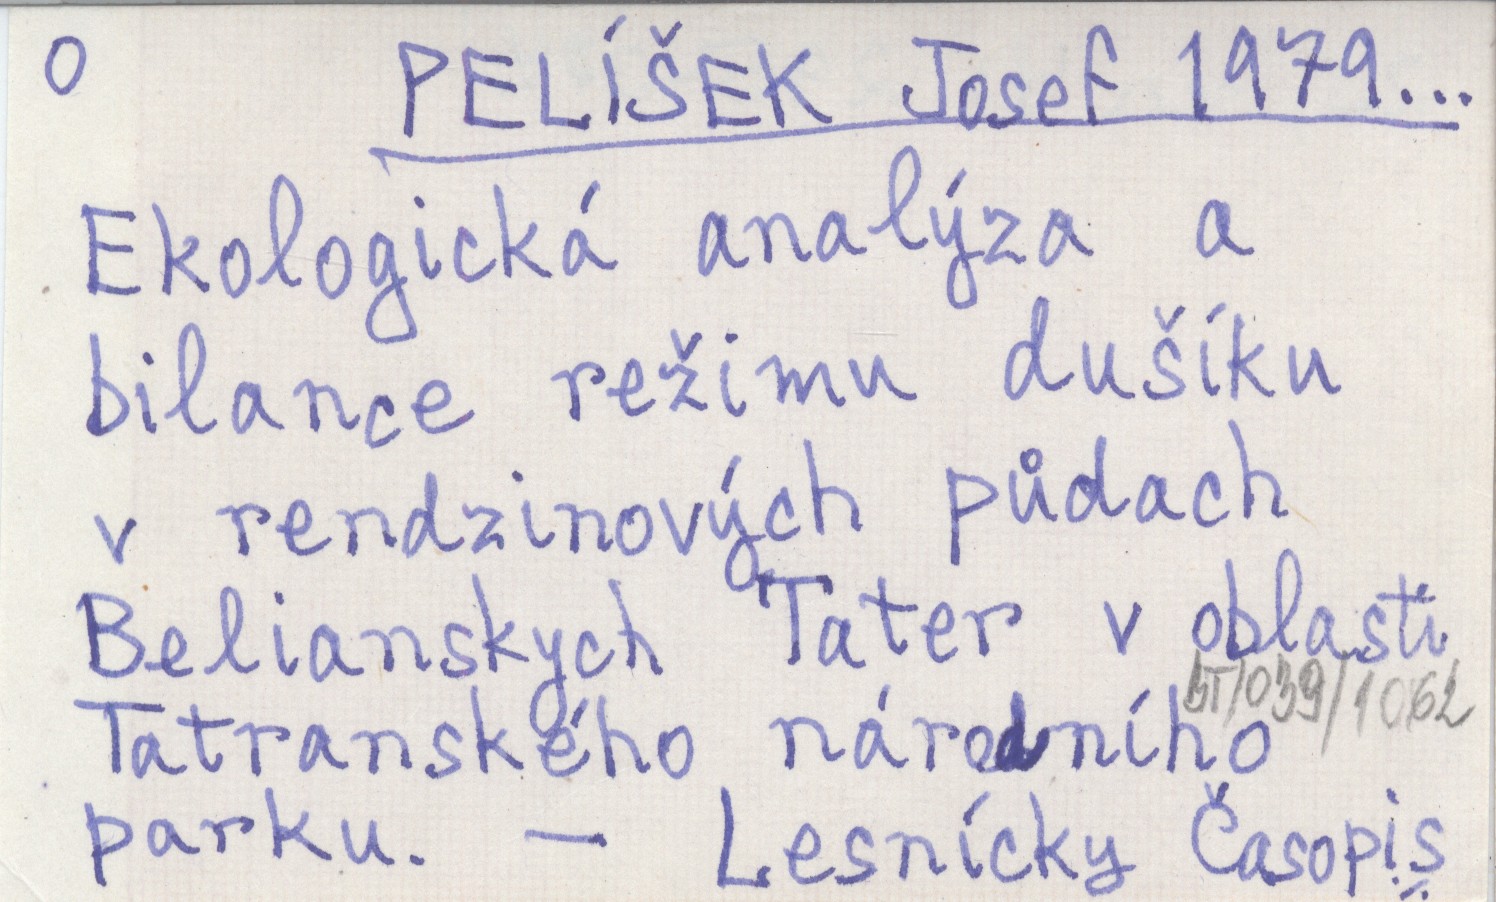 O PELÍŠEK Josef 1979...
Ekologická analýza a
bilance režimu dušíku
v rendzinových půdach
Belianskych Tater v oblasti
BT/039/1062
Tatranského národního
parku. — Lesnícky Časopis